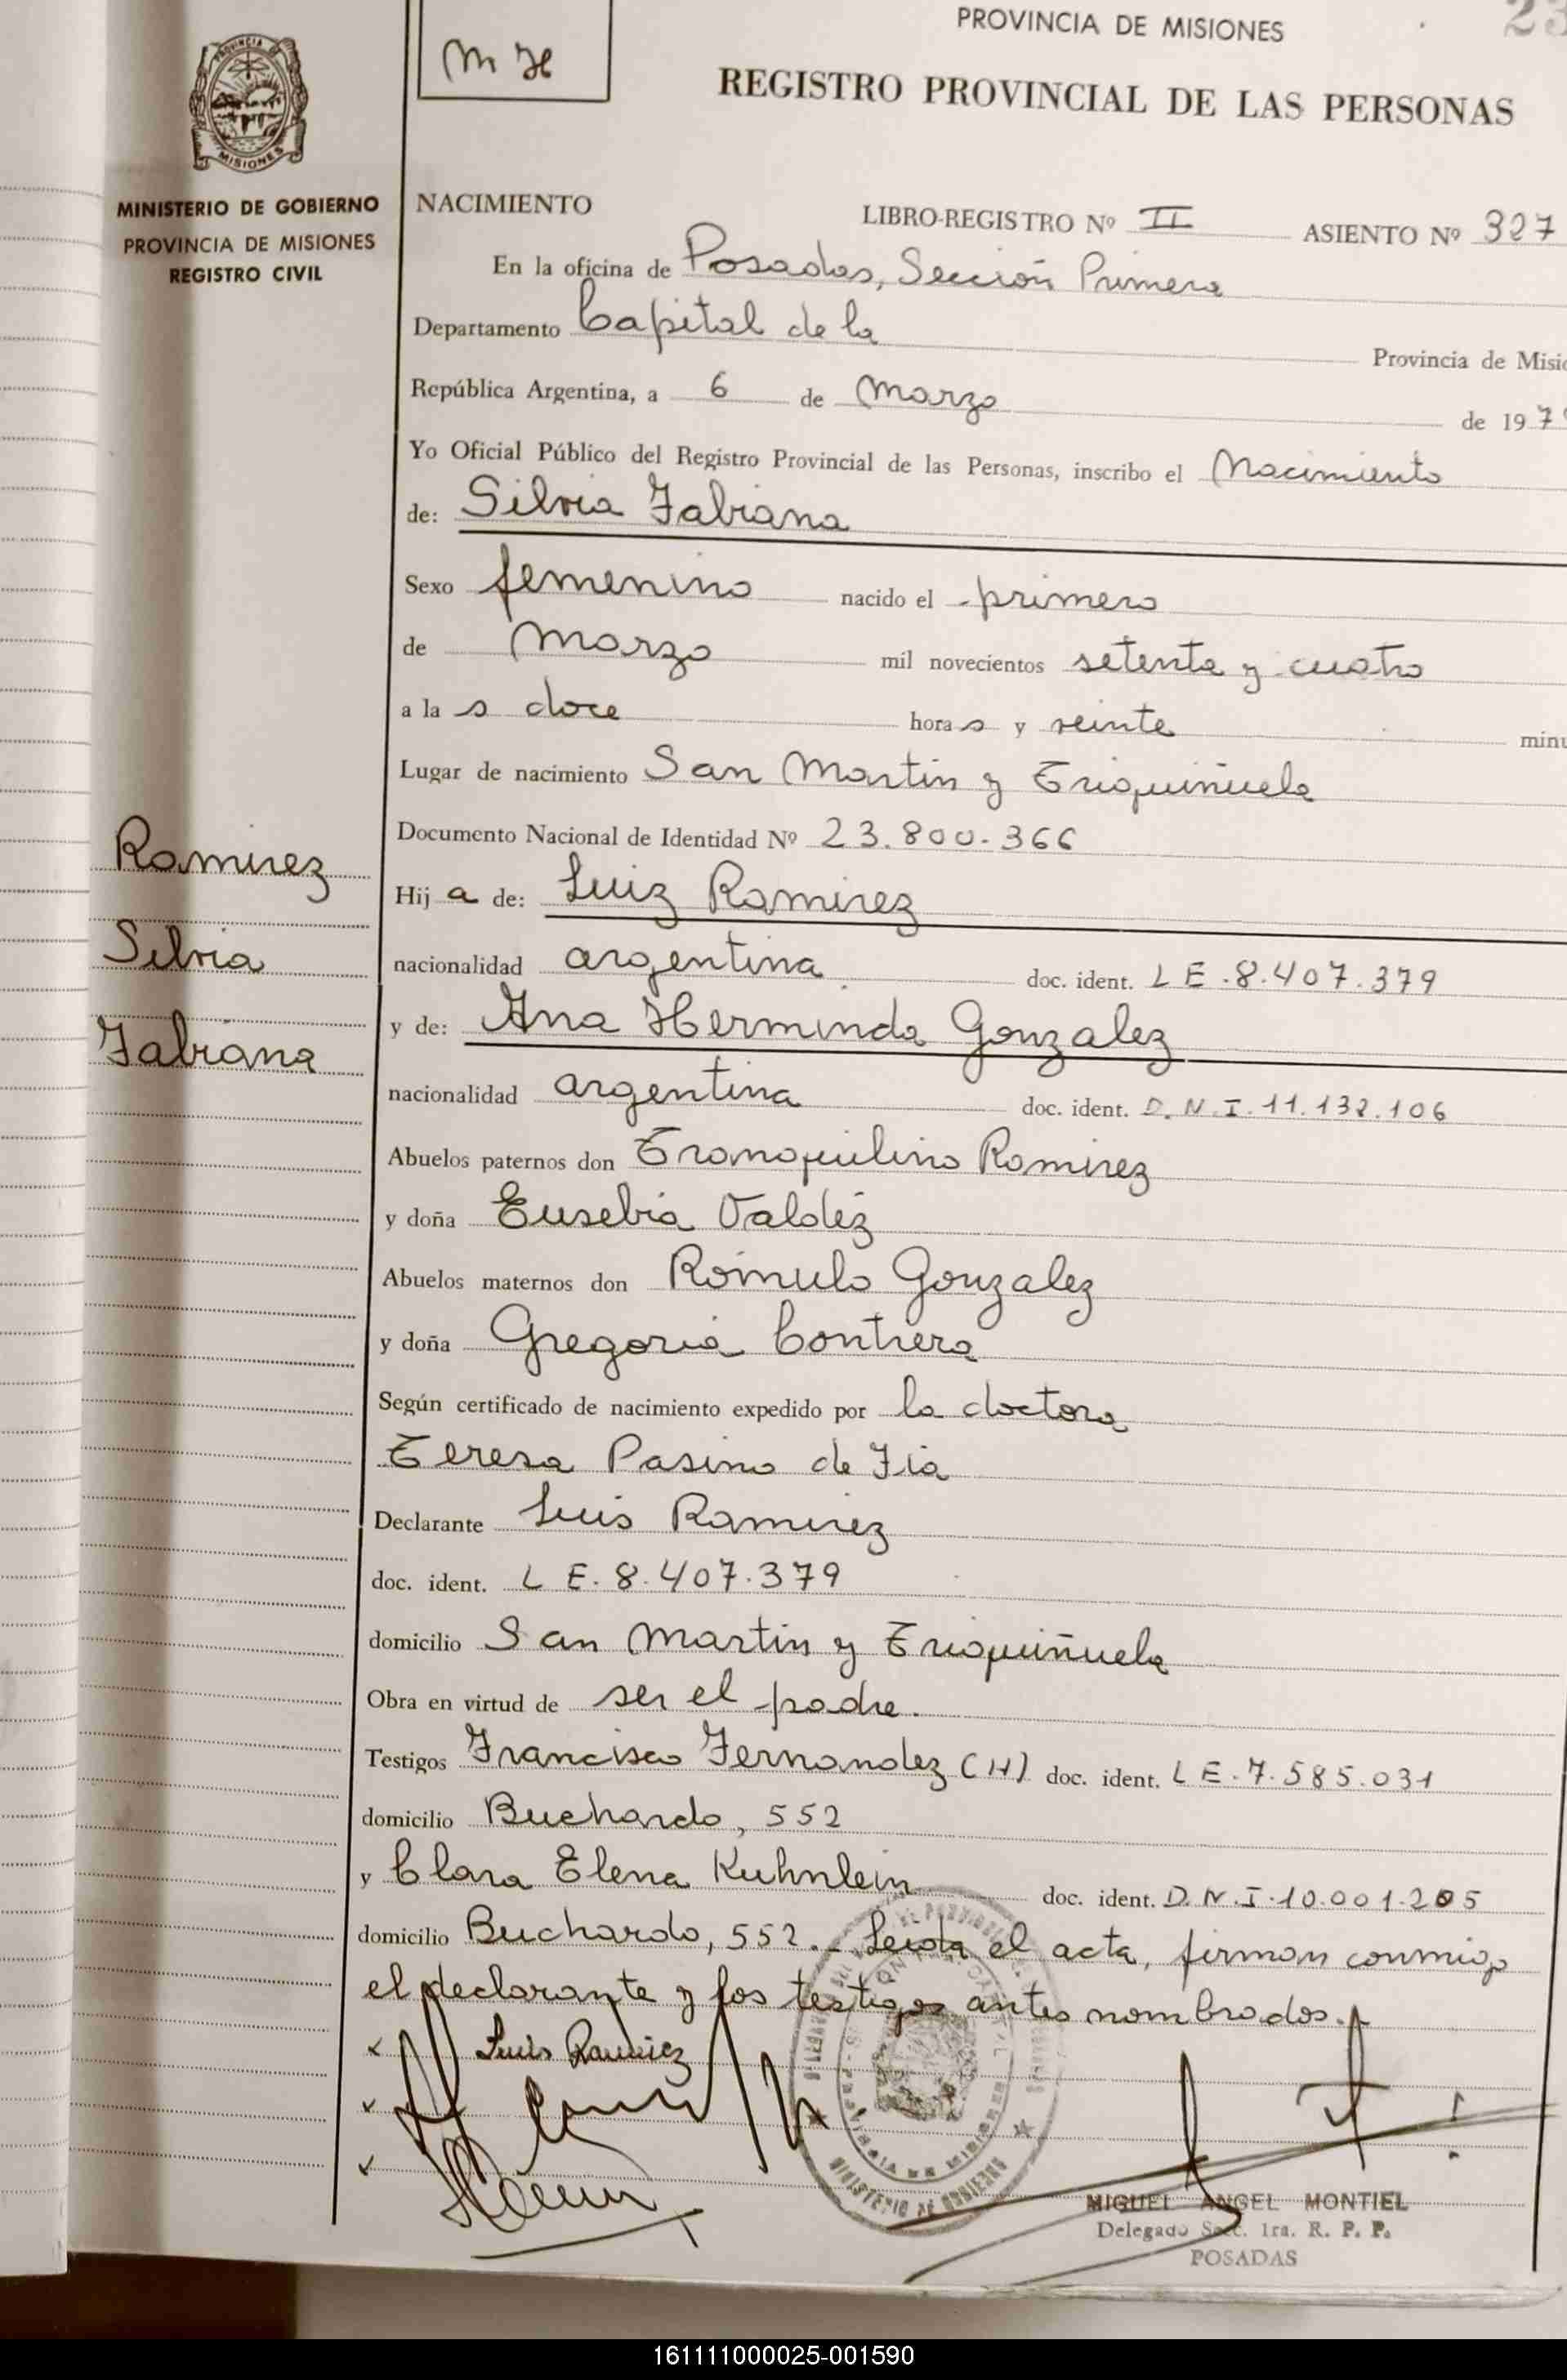 PROVINCIA DE MISIONES
23
M H
REGISTRO PROVINCIAL DE LAS PERSONAS
MISIONES
MINISTERIO DE GOBIERNO
PROVINCIA DE MISIONES
REGISTRO CIVIL
NACIMIENTO LIBRO-REGISTRO Nº II ASIENTO Nº 327
En la oficina de Posadas, Sección Primera
Departamento Capital de la Provincia de Misio
República Argentina, a 6 de Marzo de 197
Yo Oficial Público del Registro Provincial de las Personas, inscribo el Nacimiento
de: Silvia Fabiana
Sexo femenino nacido el primero
de Marzo mil novecientos setenta y cuatro
a la s doce hora s y veinte minu
Lugar de nacimiento San Martin y Triquiñuela
Documento Nacional de Identidad Nº 23.800.366
Hij a de: Luiz Ramirez
nacionalidad argentina doc. ident. L E. 8.407.379
y de: Ana Herminda Gonzalez
nacionalidad argentina doc. ident. D.N.I. 11.132.106
Abuelos paternos don Tranquilino Ramirez
y doña Eusebia Valdéz
Abuelos maternos don Rómulo Gonzalez
y doña Gregoria Contrera
Según certificado de nacimiento expedido por la doctora
Teresa Pasino de Fia
Declarante Luis Ramirez
doc. ident. L E. 8.407.379
domicilio San Martin y Triquiñuela
Obra en virtud de ser el padre.
Testigos Francisco Fernandez (H) doc. ident. L E. 7.585.031
domicilio Buchardo, 552
y Clara Elena Kuhnlein doc. ident. D.N.I. 10.001.205
domicilio Buchardo, 552.- Leída el acta, firman conmigo
el declarante y los testigos antes nombrados.-
Ramirez
Silvia
Fabiana
Luis Ramirez
MINISTERIO DE GOBIERNO
MIGUEL ANGEL MONTIEL
Delegado Secc. 1ra. R. P. P.
POSADAS
161111000025-001590